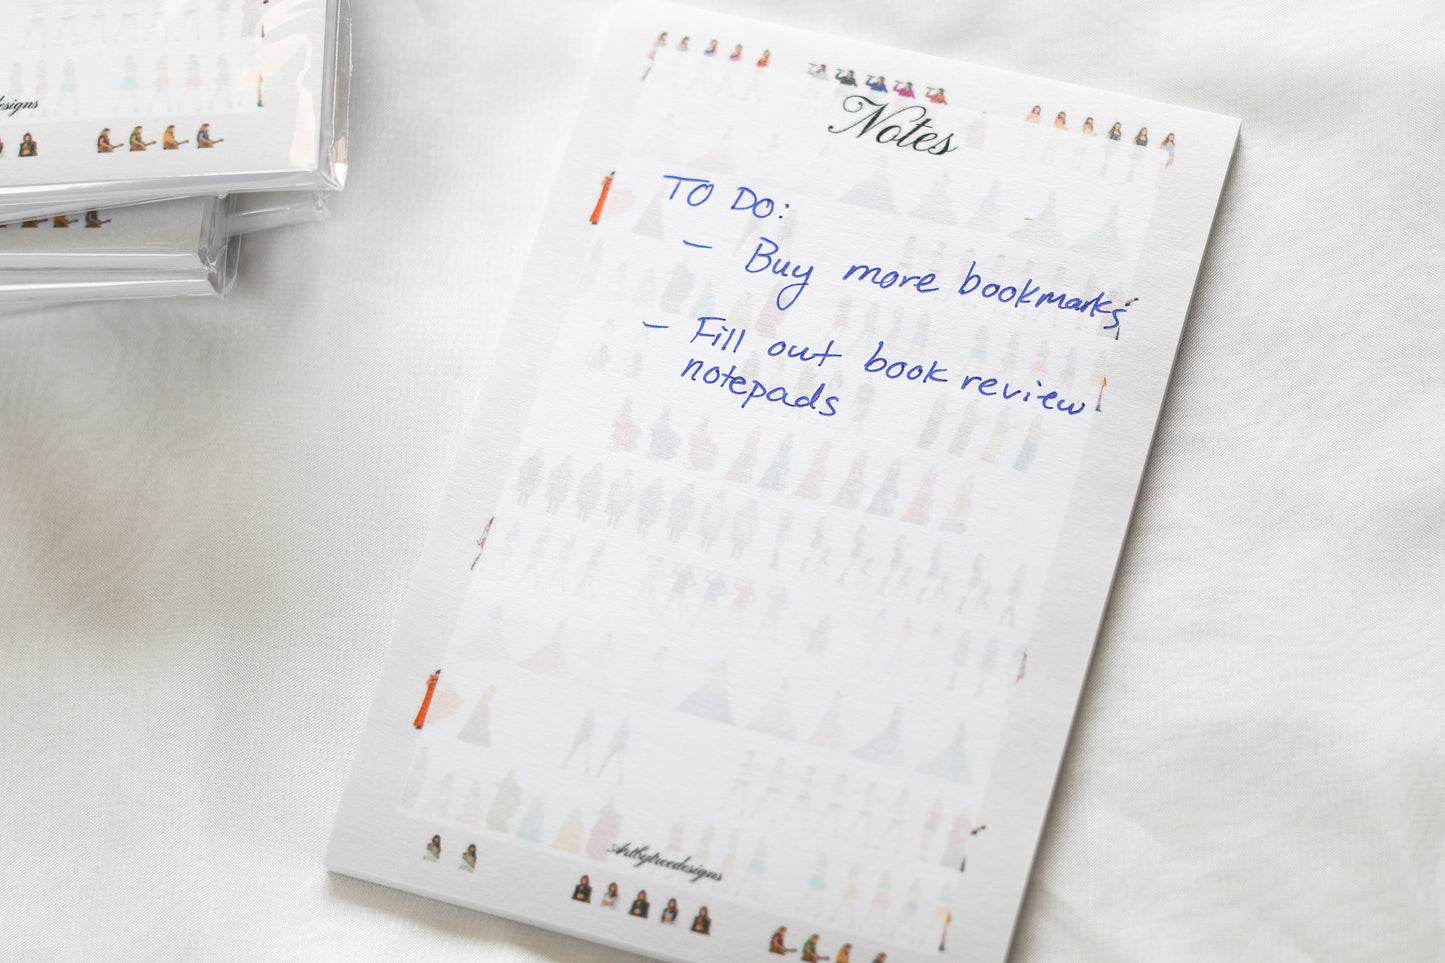 esigns
Notes
TO DO:
- Buy more bookmarks
- Fill out book review
notepads
Artbytreedesigns